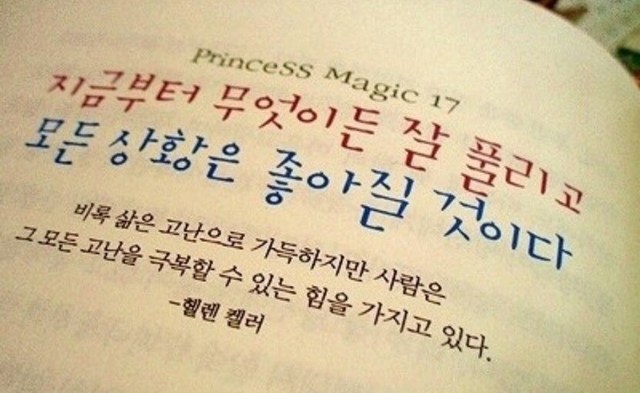 PrinceSS Magic 17
지금부터 무엇이든 잘 풀리고
모든 상황은 좋아질 것이다
비록 삶은 고난으로 가득하지만 사람은
그 모든 고난을 극복할 수 있는 힘을 가지고 있다.
-헬렌 켈러